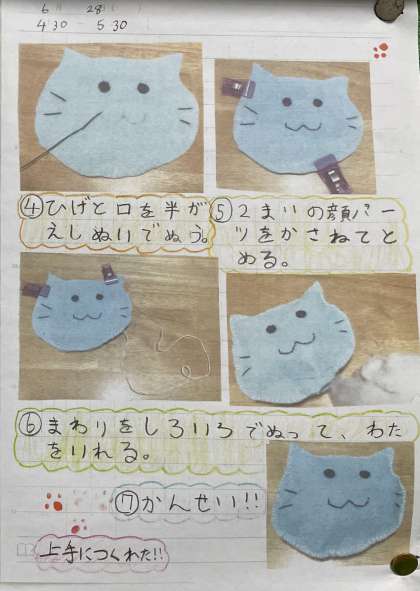 6 28
4 30 5 30
④ひげと口を半が
えしぬいでぬう。
⑤2まいの顔パー
ツをかさねてと
める。
⑥まわりをしろいろでぬって、わた
をいれる。
⑦かんせい!!
上手につくれた!!